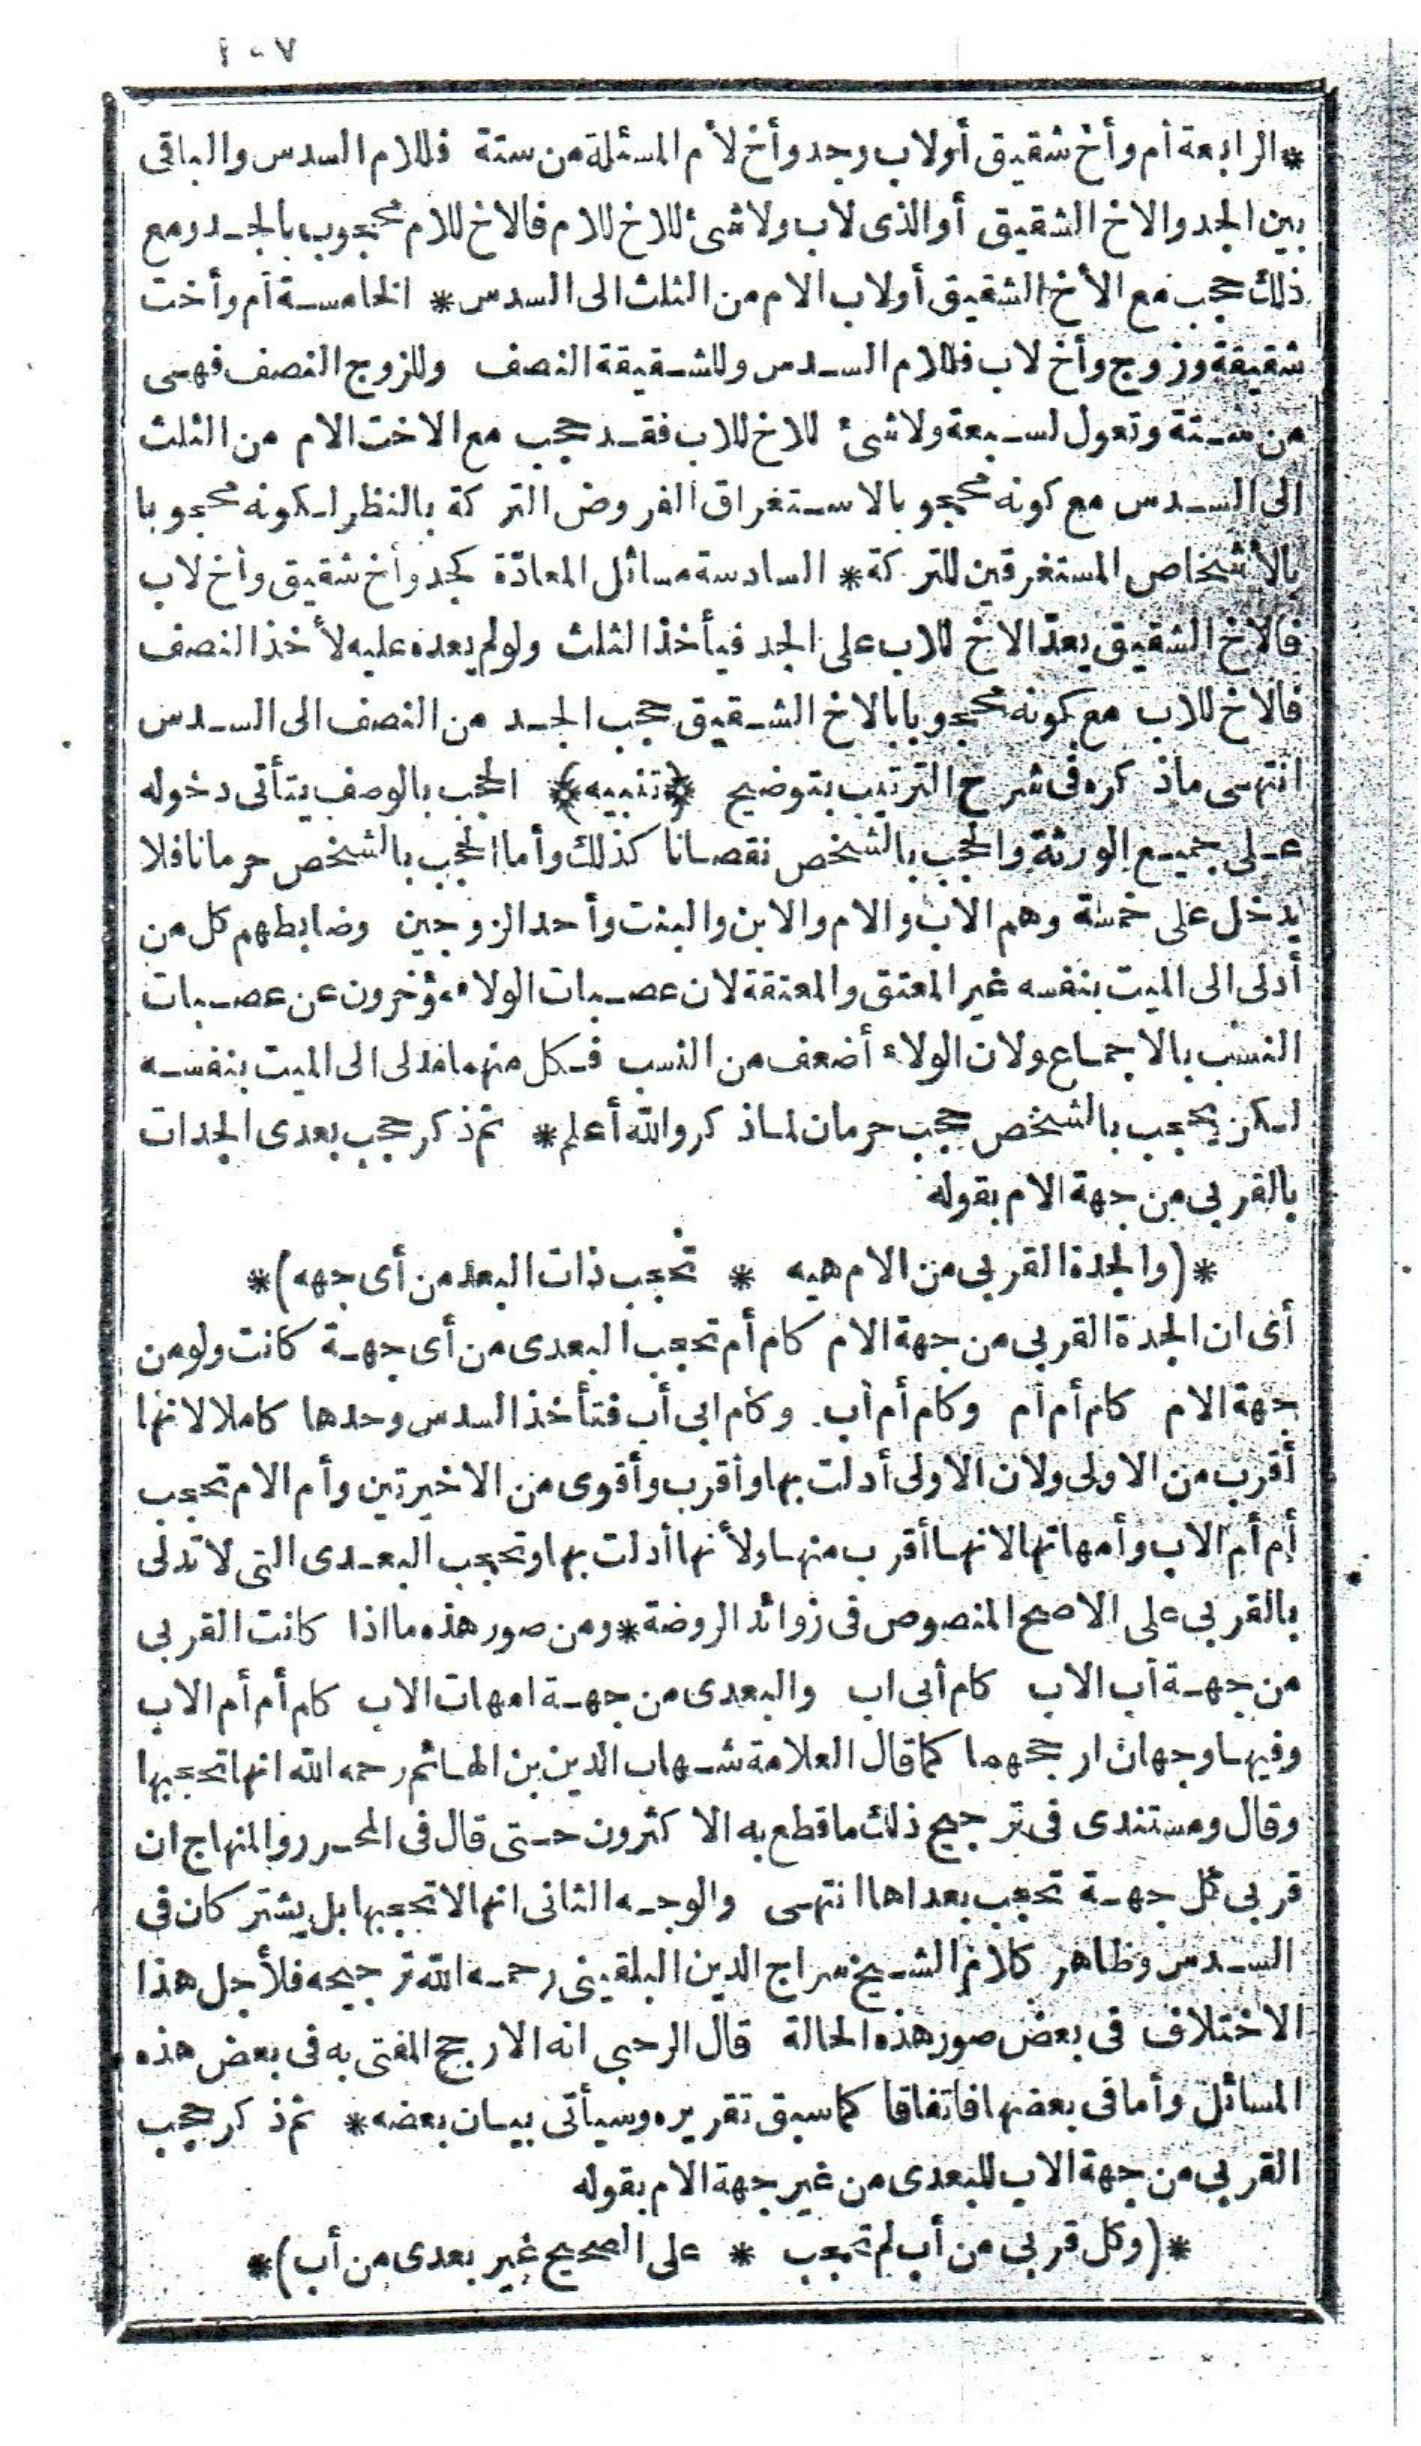 ١٠٧
*الرابعة أم وأخ شقيق أولاب وجد وأخ لأم المسئلة من ستة فللام السدس والباقى
بين الجد والاخ الشقيق أوالذى لاب ولا شئ للاخ للام فالاخ للام محجوب بالجد ومع
ذلك حجب مع الأخ الشقيق أولاب الام من الثلث الى السدس* الخامسة أم وأخت
شقيقة وزوج وأخ لاب فللام السدس وللشقيقة النصف وللزوج النصف فهى
من ستة وتعول لسبعة ولا شئ للاخ للاب فقد حجب مع الاخت الام من الثلث
الى السدس مع كونه محجوبا لاستغراق الفروض التركة بالنظر لكونه محجوبا
بالأشخاص المستغرقين للتركة* السادسة مسائل المعادّة كجد وأخ شقيق وأخ لاب
فالاخ الشقيق يعدّ الاخ للاب على الجد فيأخذ الثلث ولولم يعده عليه لأخذ النصف
فالاخ للاب مع كونه محجوبا بالاخ الشقيق حجب الجد من النصف الى السدس
انتهى ماذكره فى شرح الترتيب بتوضيح ﴿تنبيه﴾ الحجب بالوصف يتأتى دخوله
على جميع الورثة والحجب بالشخص نقصانا كذلك وأما الحجب بالشخص حرمانا فلا
يدخل على خمسة وهم الاب والام والابن والبنت وأحد الزوجين وضابطهم كل من
أدلى الى الميت بنفسه غير المعتق والمعتقة لان عصبات الولاء مؤخرون عن عصبات
النسب بالاجماع ولان الولاء أضعف من النسب فكل منهما مدلى الى الميت بنفسه
لكن يحجب بالشخص حجب حرمان لماذكر والله أعلم* ثم ذكر حجب بعدى الجدات
بالقربى من جهة الام بقوله
*(والجدة القربى من الام هيه * تحجب ذات البعد من أى جهه)*
أى ان الجدة القربى من جهة الام كام أم تحجب البعدى من أى جهة كانت ولو من
جهة الام كام أم أم وكام أم أب. وكام ابى أب فتأخذ السدس وحدها كاملا لانها
أقرب من الاولى ولان الاولى أدلت بها وأقرب وأقوى من الاخيرتين وأم الام تحجب
أم أم الاب وأمهاتها لانها أقرب منها ولأنها أدلت بها وتحجب البعدى التى لا تدلى
بالقربى على الاصح المنصوص فى زوائد الروضة* ومن صور هذه ما اذا كانت القربى
من جهة أب الاب كام أبى اب والبعدى من جهة امهات الاب كام أم أم الاب
وفيها وجهان ارجحهما كما قال العلامة شهاب الدين بن الهائم رحمه الله انها تحجبها
وقال ومستندى فى ترجيح ذلك ما قطع به الا كثرون حتى قال فى المحرر والمنهاج ان
قربى كل جهة تحجب بعداها انتهى والوجه الثانى انها لا تحجبها بل يشتركان فى
السدس وظاهر كلام الشيخ سراج الدين البلقينى رحمه الله ترجيحه فلأجل هذا
الاختلاف فى بعض صور هذه الحالة قال الرحبى انه الارجح المفتى به فى بعض هذه
المسائل وأما فى بعضها فاتفاقا كما سبق تقريره وسيأتى بيان بعضه* ثم ذكر حجب
القربى من جهة الاب للبعدى من غير جهة الام بقوله
*(وكل قربى من أب لم تحجب * على الصحيح غير بعدى من أب)*